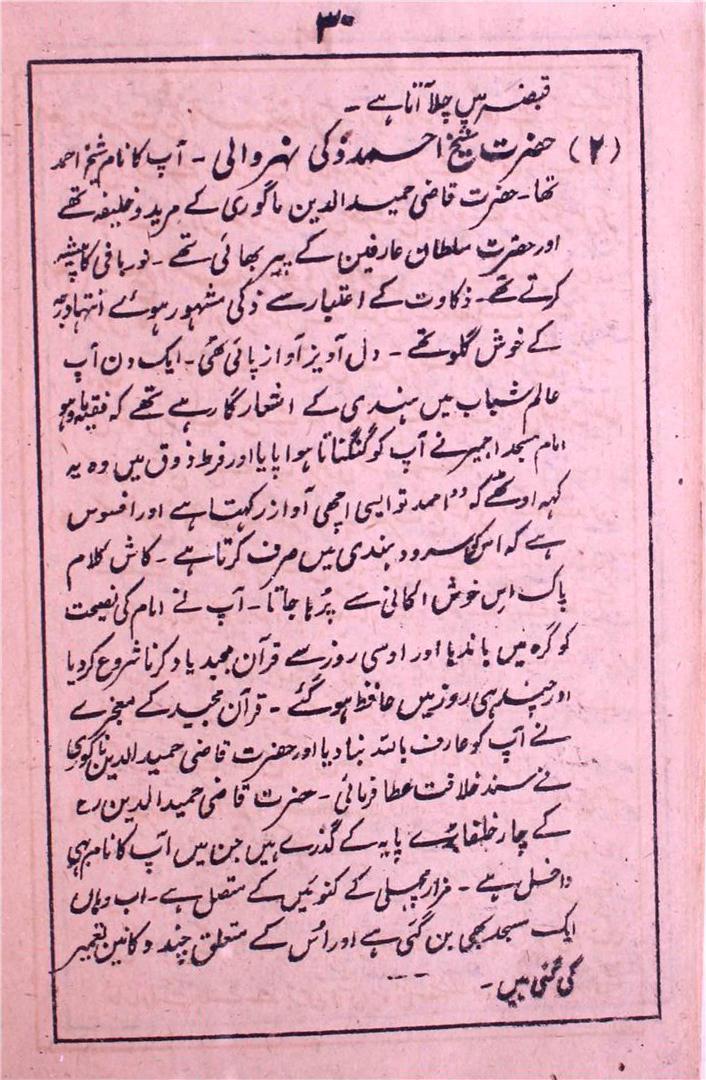 ۳۰
قبضہ میں چلا آتا ہے ۔
(۲) حضرت شیخ احمد ذکی نہروالی ۔ آپ کا نام شیخ احمد
تھا ۔ حضرت قاضی حمید الدین ناگوری کے مرید و خلیفہ تھے
اور حضرت سلطان عارفین کے پیر بھائی تھے ۔ نوربافی کا پیشہ
کرتے تھے ۔ ذکاوت کے اعتبار سے ذکی مشہور ہوئے انتہا درجہ
کے خوش گلو تھے ۔ دل آویز آواز پائی تھی ۔ ایک دن آپ
عالم شباب میں ہندی کے اشعار گا رہے تھے کہ فقیہ مادہو
امام مسجد اجمیر نے آپ کو گنگناتا ہوا پایا اور فرط ذوق میں وہ یہ
کہہ اوٹھے کہ " احمد تو ایسی اچھی آواز رکہتا ہے اور افسوس
ہے کہ اس کو سرود ہندی میں صرف کرتا ہے ۔ کاش کلام
پاک اس خوش الحانی سے پڑہا جاتا ۔ آپ نے امام کی نصیحت
کو گرہ میں باندہا اور اوسی روز سے قرآن مجید یاد کرنا شروع کردیا
اور چند ہی روز میں حافظ ہو گئے ۔ قرآن مجید کے معجزے
نے آپ کو عارف باللہ بنا دیا اور حضرت قاضی حمید الدین ناگوری
نے سند خلافت عطا فرمائی ۔ حضرت قاضی حمید الدین رح
کے چار خلفا بڑے پایہ کے گذرے ہیں جن میں آپ کا نام بہی
داخل ہے ۔ مزار مچہلی کے کنوئیں کے متصل ہے ۔ اب وہاں
ایک مسجد بھی بن گئی ہے اور اُس کے متعلق چند دکانیں تعمیر
کی گئی ہیں ۔